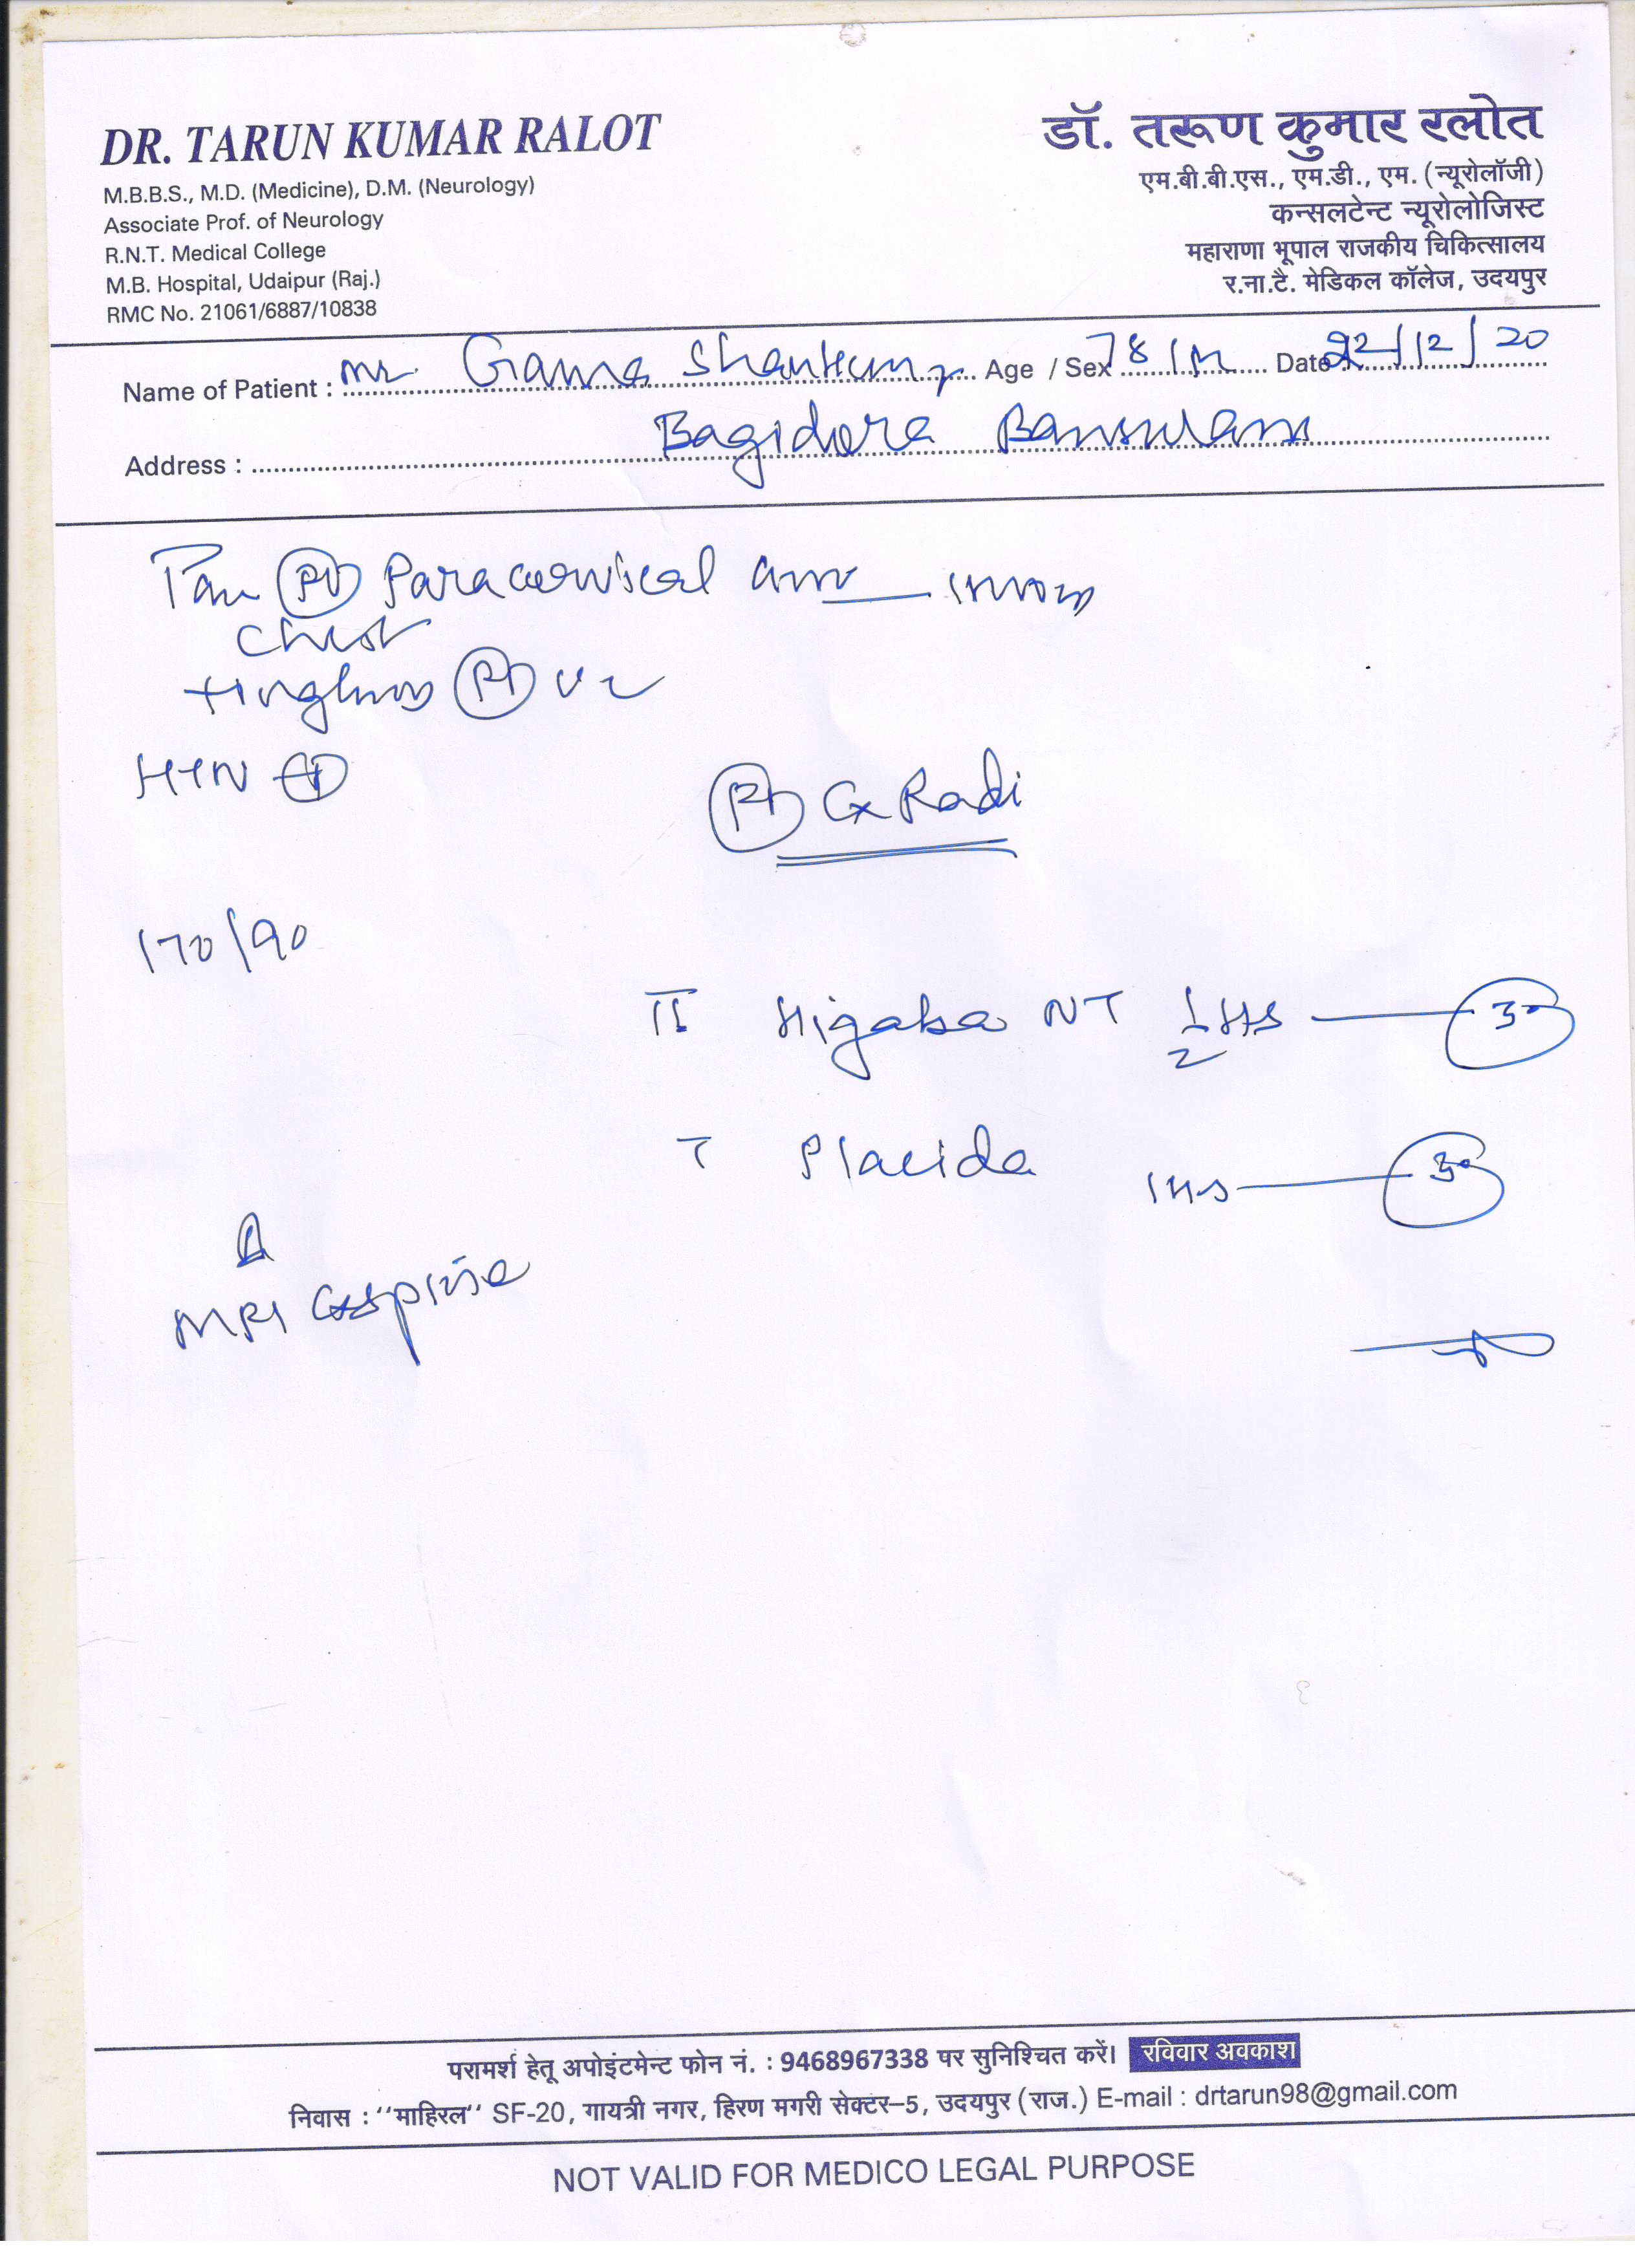 DR. TARUN KUMAR RALOT
M.B.B.S., M.D. (Medicine), D.M. (Neurology)
Associate Prof. of Neurology
R.N.T. Medical College
M.B. Hospital, Udaipur (Raj.)
RMC No. 21061/6887/10838
डॉ. तरूण कुमार रलोत
एम.बी.बी.एस., एम.डी., एम. (न्यूरोलॉजी)
कन्सलटेन्ट न्यूरोलोजिस्ट
महाराणा भूपाल राजकीय चिकित्सालय
र.ना.टै. मेडिकल कॉलेज, उदयपुर
Name of Patient : Mr. Shanker Age / Sex 78 / M Date 22/12/20
Address : Bagidora Banswara
Pain Rt Paracervical arm
chest
tingling Rt UL
HTN +
Rt Cx Radi
170/90
T Higaba NT 1/2 HS 30
T Placida 1HS 30
A
MRI Cx spine
परामर्श हेतू अपोइंटमेन्ट फोन नं. : 9468967338 पर सुनिश्चित करें। रविवार अवकाश
निवास : ''माहिरल'' SF-20, गायत्री नगर, हिरण मगरी सेक्टर–5, उदयपुर (राज.) E-mail : drtarun98@gmail.com
NOT VALID FOR MEDICO LEGAL PURPOSE